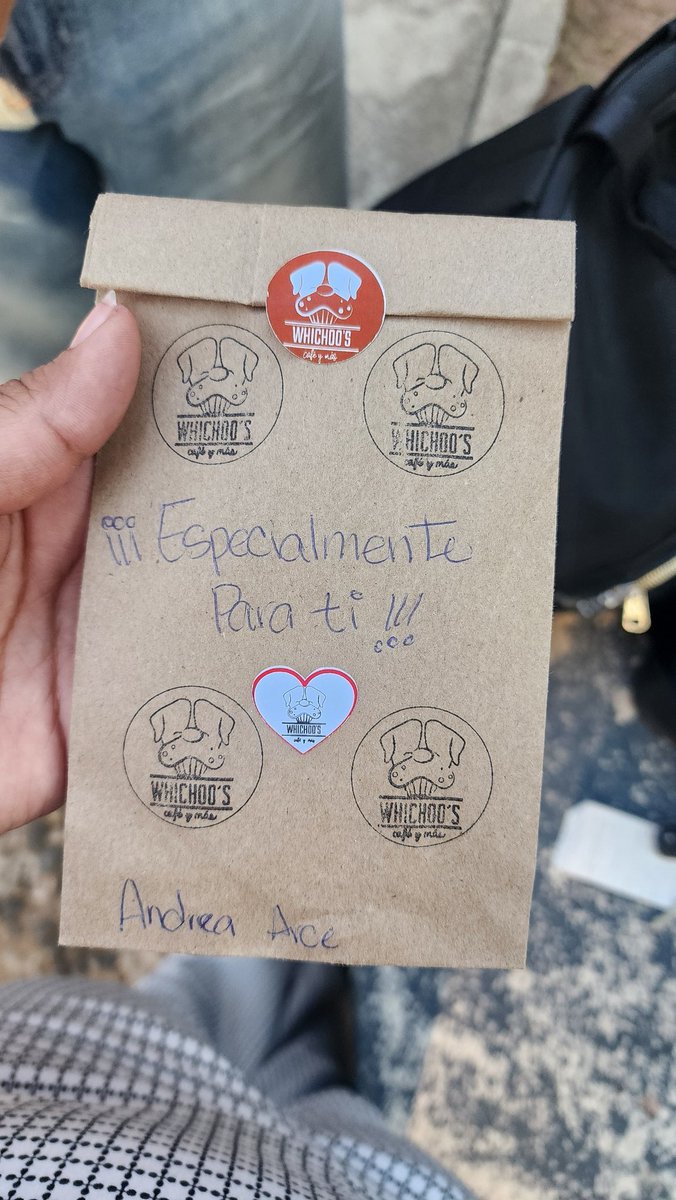 WHICHOO'S
café y más
WHICHOO'S
café y más
WHICHOO'S
café y más
¡¡¡Especialmente
Para ti !!!
WHICHOO'S
café y más
WHICHOO'S
café y más
WHICHOO'S
café y más
Andrea Arce